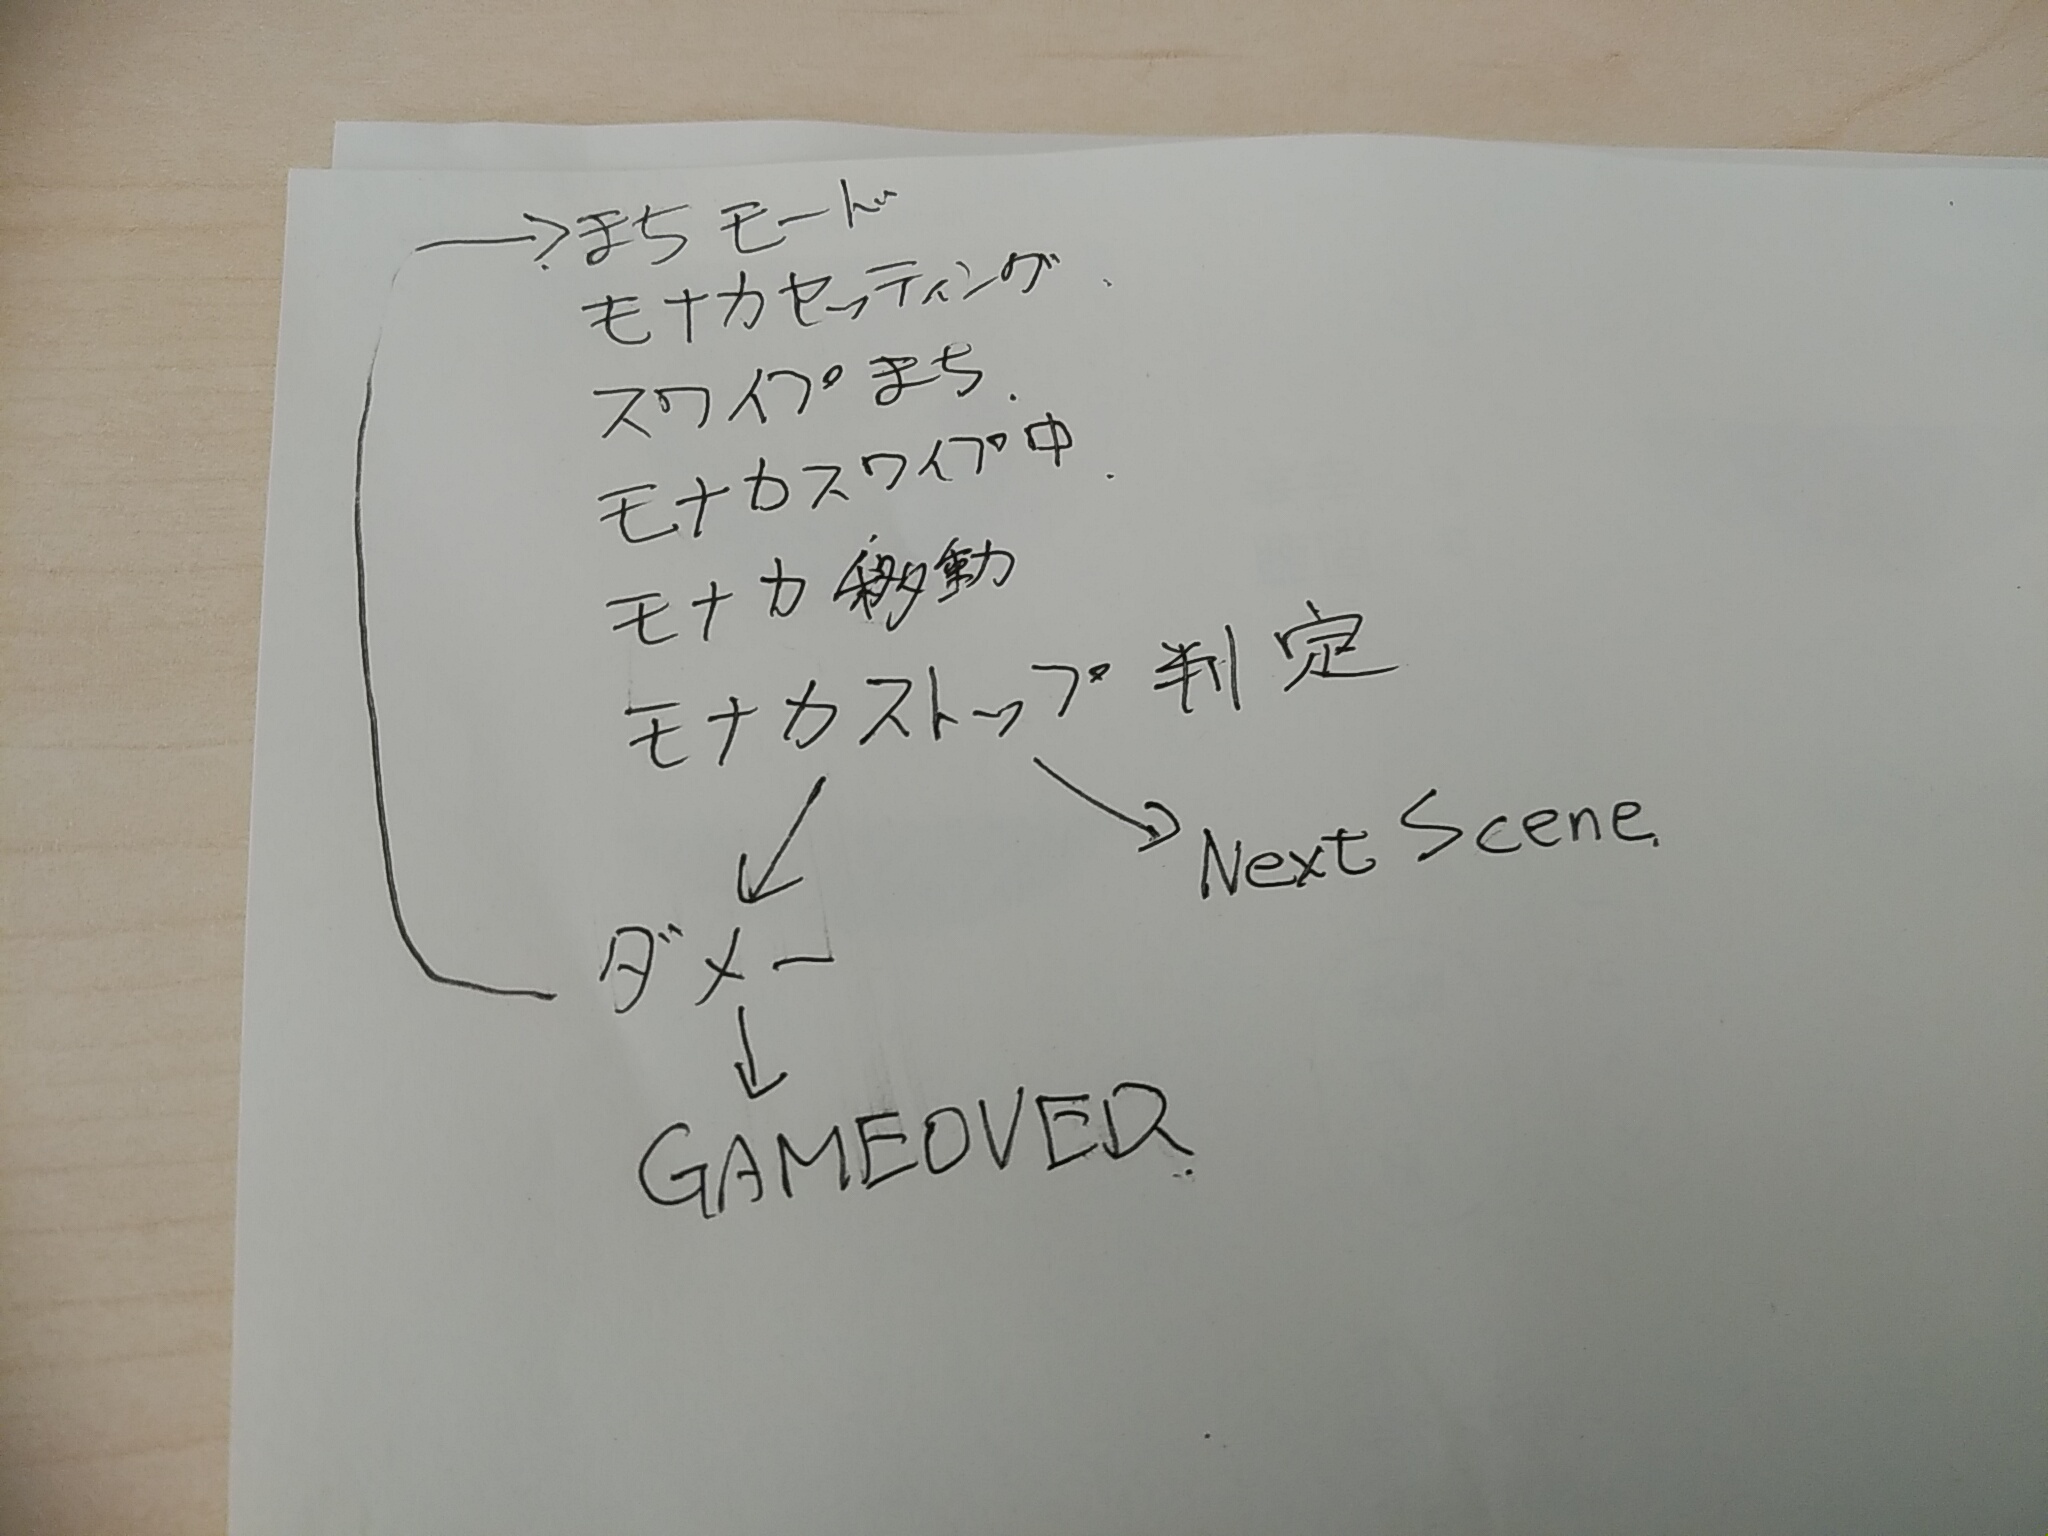 まちモード
モナカセッティング.
スワイプまち.
モナカスワイプ中.
モナカ移動
モナカストップ判定
Next Scene.
ダメー
GAMEOVER